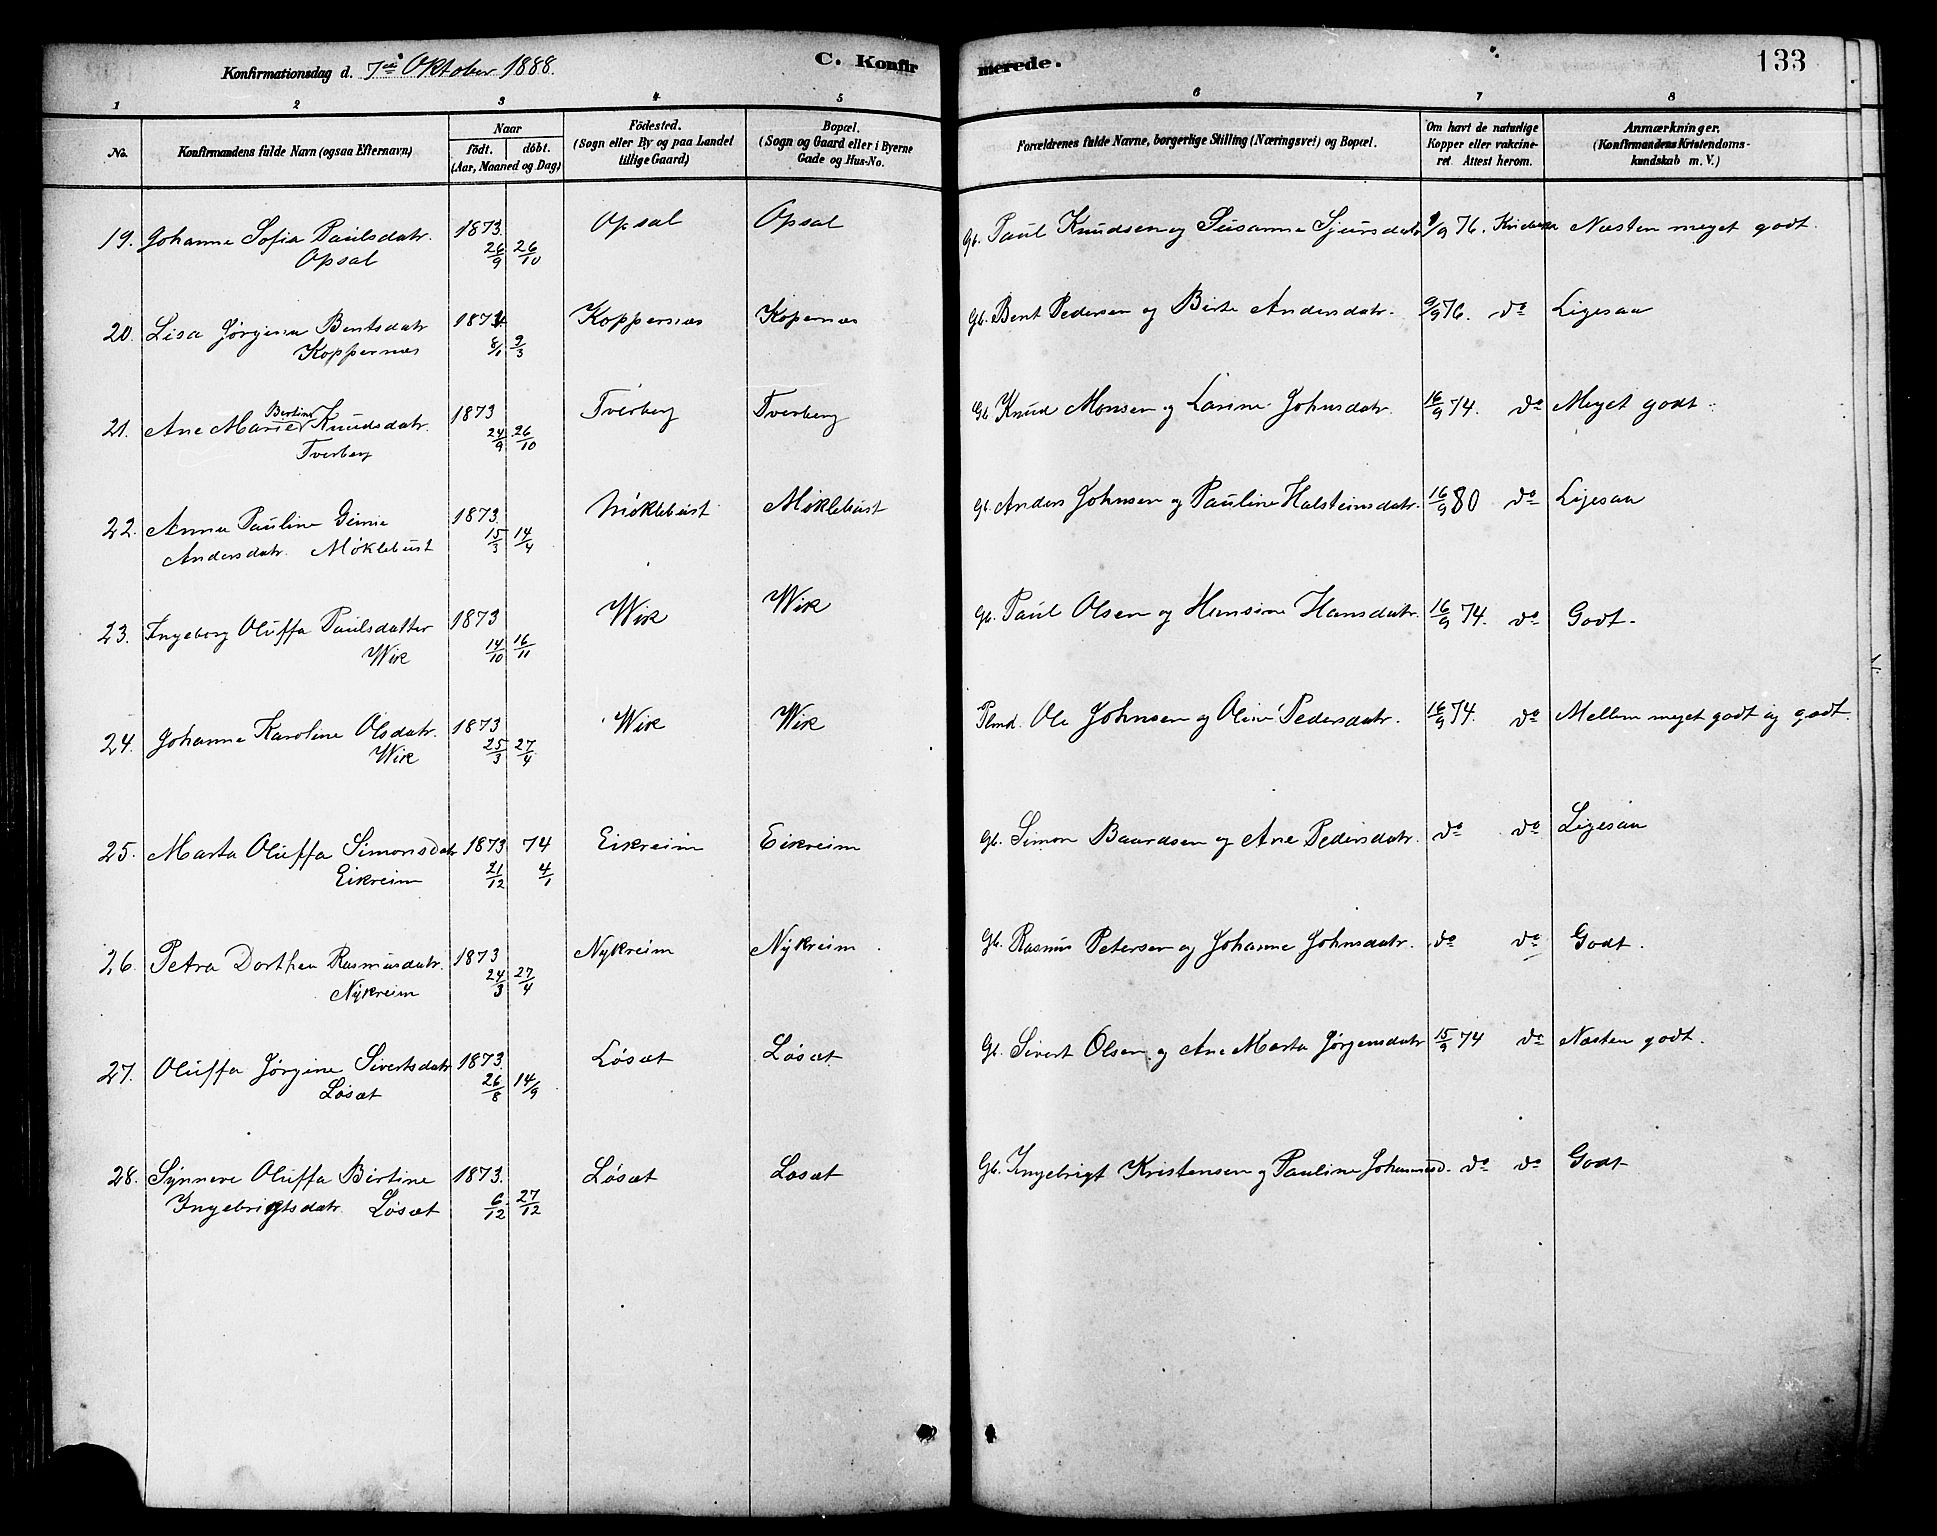 Konfirmationsdag d. 7de Oktober 1888. C. Konfirmerede. 133
1 2 3 4 5 6 7 8
No. Konfirmandens fulde Navn (ogsaa Efternavn) Naar födt. döbt. (Aar, Maaned og Dag) Födested. (Sogn eller By og paa Landet tillige Gaard) Bopæl. (Sogn og Gaard eller i Byerne Gade og Hus-No. Forældrenes fulde Navne, borgerlige Stilling (Næringsvei) og Bopæl. Om havt de naturlige Kopper eller vakcineret. Attest herom. Anmærkninger. (Konfirmandens Kristendomskundskab m. V.)
19. Johanne Sofia Paulsdatr. 1873. 26/9 26/10 Opsal Opsal Gb. Paul Knudsen og Susanne Sjursdatr 9/9 76. Næsten meget godt.
Opsal
20. Lisa Jørgina Bentsdatr 1874 8/1 9/3 Koppernæs Kopernæs Gb. Bent Pedersen og Birte Andersdatr. 9/9 76. do Ligesaa
Koppernæs
21. Ane Marie Bertine Knudsdatr. 1873 24/9 26/10 Tverberg Tverberg Gb. Knud Monsen og Larine Johnsdatr. 16/9 74. do Meget godt.
Tverberg
22. Anna Pauline Gimie 1873. 15/3 14/4 Møklebust Møklebust Gb. Anders Johnsen og Pauline Halsteinsdatr. 16/9 80 do Ligesaa
Andersdatr. Møklebust
23. Ingeborg Oluffa Paulsdatter 1873 14/10 16/11 Wik Wik Gb. Paul Olsen og Hansine Hansdatr. 16/9 74. do Godt.
Wik
24. Johanne Karoline Olsdatr. 1873 25/3 27/4 Wik Wik Plmd. Ole Johnsen og Oline Pedersdatr. 16/9 74. do Mellem meget godt og godt.
Wik
25. Marta Oluffa Simonsdatr 1873 21/12 74 4/1 Eikreim Eikreim Gb. Simon Baardsen og Ane Pedersdatr. do do Ligesaa
Eikreim
26. Petra Dorthea Rasmusdatr. 1873 24/3 27/4 Nykreim Nykreim Gb. Rasmus Petersen og Johanne Johnsdatr. do do Godt.
Nykreim
27. Oluffa Jørgine Sivertsdatr 1873. 26/8 14/9 Løsæt Løsæt Gb. Sivert Olsen og Ane Marta Jørgensdatr 15/9 74 do Næsten godt.
Løsæt
28. Synneve Oluffa Birtine 1873. 6/12 27/12 Løsæt Løsæt Gb. Ingebrigt Kristensen og Pauline Johannesd. do do Godt
Ingebrigtsdatr. Løsæt